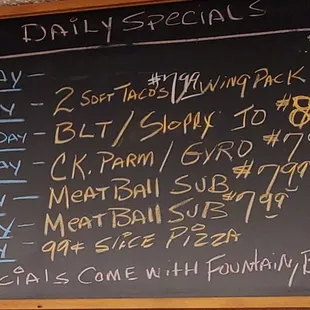 DAILY SPECIALS
AY -
Y - 2 SOFT TACO'S $7.99 / WING PACK
DAY - BLT / SLOPPY JO $8
AY - CK. PARM / GYRO $7
- MEATBALL SUB $7.99
Y - MEATBALL SUB $7.99
Y - 99¢ SLICE PIZZA
CIALS COME WITH FOUNTAIN,